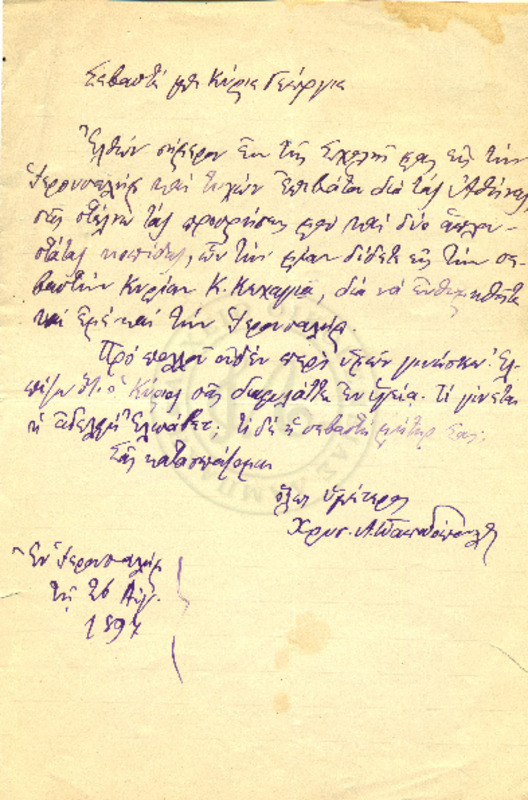 Σεβαστή μοι Κυρία Γεωργία
Ἐλθὼν σήμερον ἐκ τῆς Σχολῆς μας εἰς τὴν
Ἱερουσαλὴμ καὶ τυχὼν ἐπιβάτου διὰ τὰς Ἀθήνας
σᾶς στέλνω τὰς προσρήσεις μου καὶ δύο ἁπλου-
στάτας κοπίδας, ὧν τὴν μίαν δίδετε εἰς τὴν σε-
βαστὴν Κυρίαν Κ. Κεχαγιᾶ, διὰ νὰ ἐνθυμῆσθε
καὶ ἐμὲ καὶ τὴν Ἱερουσαλήμ.
Πρὸ πολλοῦ οὐδὲν περὶ ὑμῶν γινώσκω. Ἐλ-
πίζω ὅτι ὁ Κύριος σᾶς διαφυλάττει ἐν ὑγείᾳ. Τί γίνεται
ἡ ἀδελφὴ Ἐλισάβετ; τί δὲ ἡ σεβαστὴ μήτηρ σας;
Σᾶς κατασπάζομαι
ὅλως ὑμέτερος
Χρυσ. Α. Παπαδόπουλος
Ἐν Ἱερουσαλὴμ
τῇ 26 Αὐγ.
1897